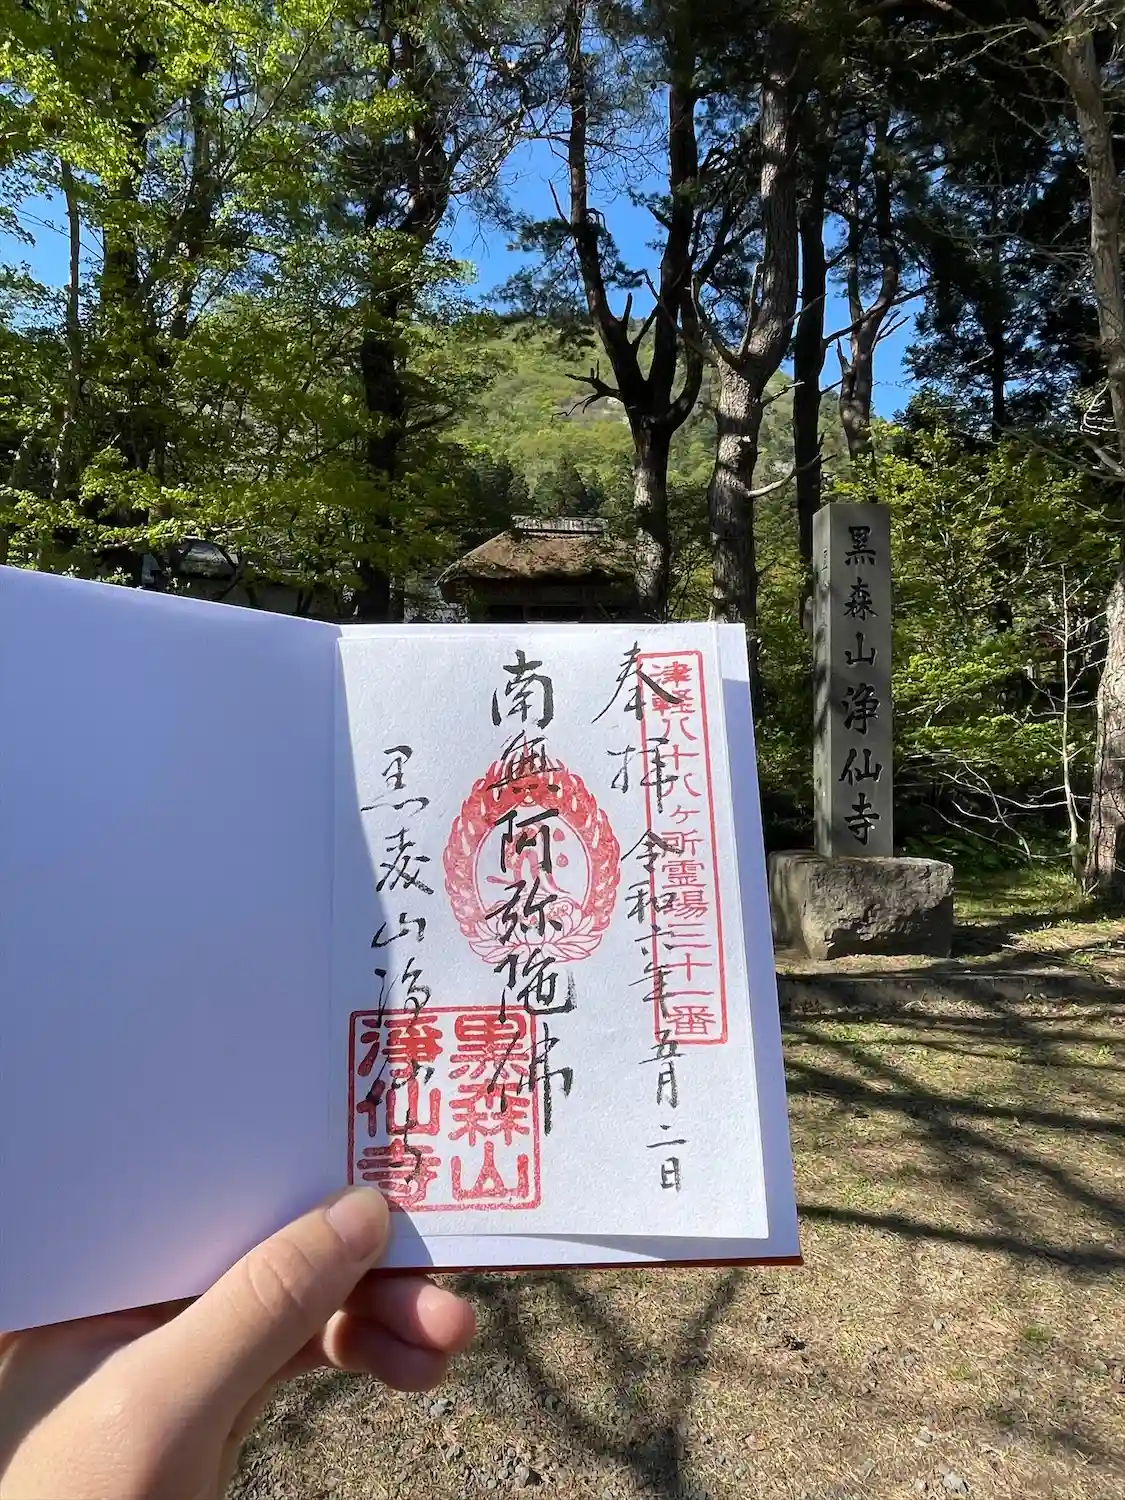 黒森山浄仙寺
奉拝
令和六年五月二日
津軽八十八ヶ所霊場三十一番
南無阿弥陀佛
黒森山浄仙寺
黒森山
浄仙寺